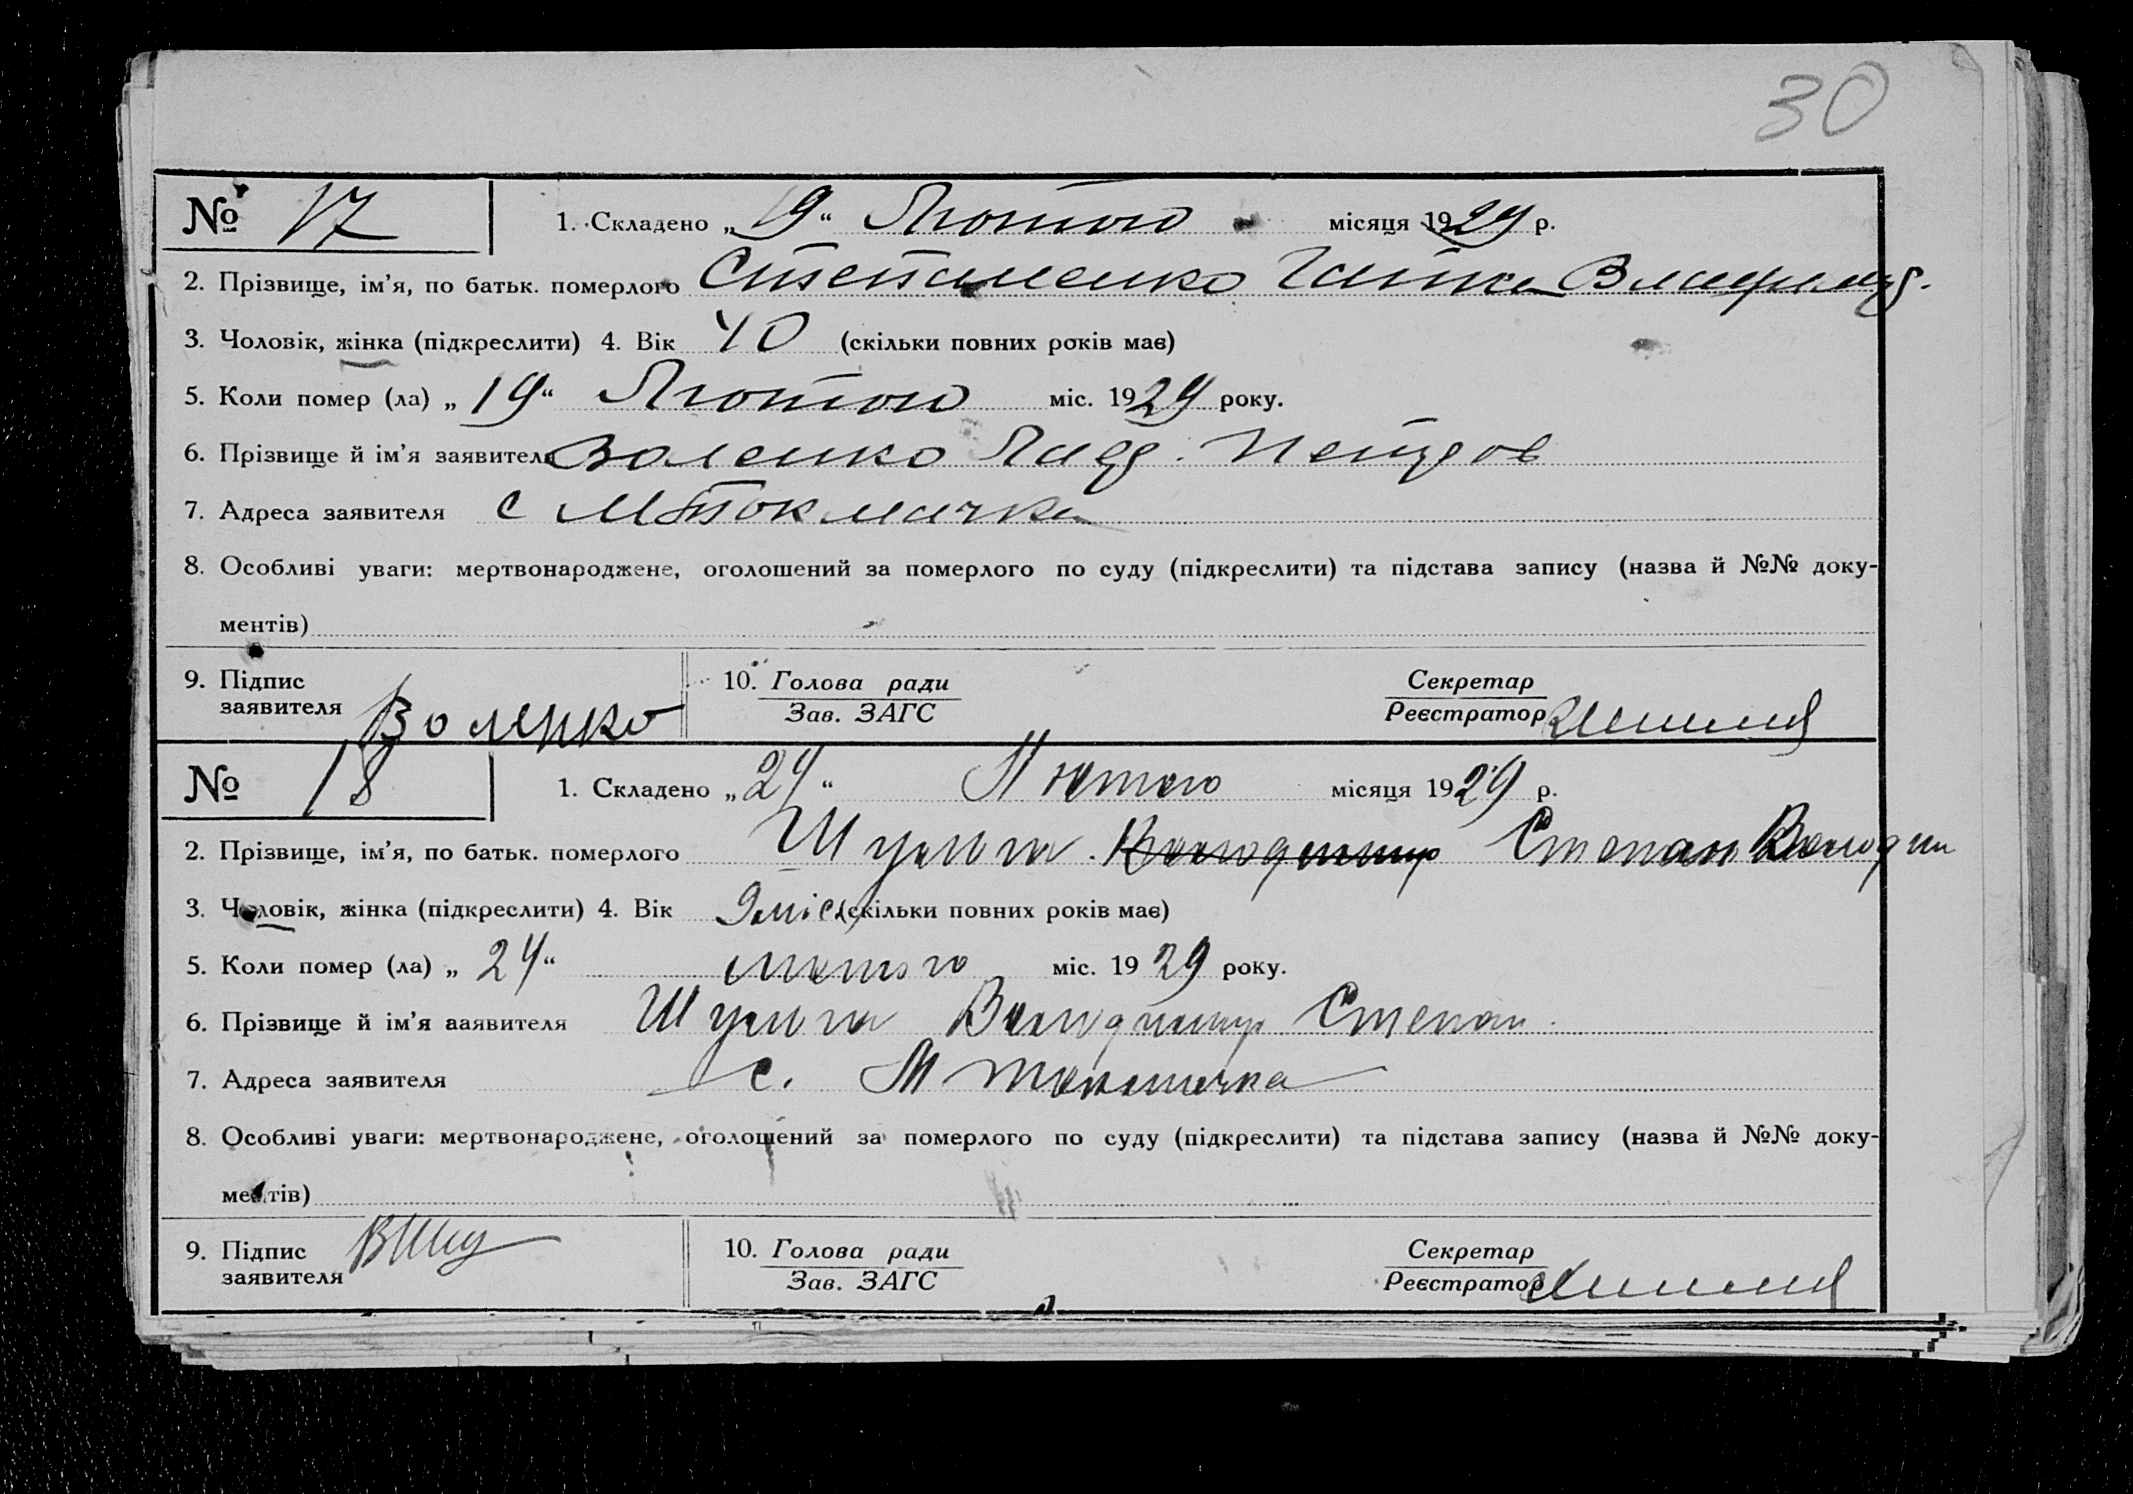 30
№ 17 1. Складено „19“ Лютого місяця 1929 р.
2. Прізвище, ім’я, по батьк. померлого Степаненко
3. Чоловік, жінка (підкреслити) 4. Вік 40 (скільки повних років має)
5. Коли помер (ла) „19“ Лютого міс. 1929 року.
6. Прізвище й ім’я заявителя Воленко Петров
7. Адреса заявителя с М Токмачка
8. Особливі уваги: мертвонароджене, оголошений за померлого по суду (підкреслити) та підстава запису (назва й №№ доку-
ментів)
9. Підпис заявителя Воленко 10. Голова ради Зав. ЗАГС Секретар Реєстратор
№ 18 1. Складено „24“ Лютого місяця 1929 р.
2. Прізвище, ім’я, по батьк. померлого Шульга Володимир Степан Володим
3. Чоловік, жінка (підкреслити) 4. Вік 9 міся (скільки повних років має)
5. Коли помер (ла) „24“ лютого міс. 1929 року.
6. Прізвище й ім’я заявителя Шульга Володимир Степан.
7. Адреса заявителя с. М Токмачка
8. Особливі уваги: мертвонароджене, оголошений за померлого по суду (підкреслити) та підстава запису (назва й №№ доку-
ментів)
9. Підпис заявителя 10. Голова ради Зав. ЗАГС Секретар Реєстратор